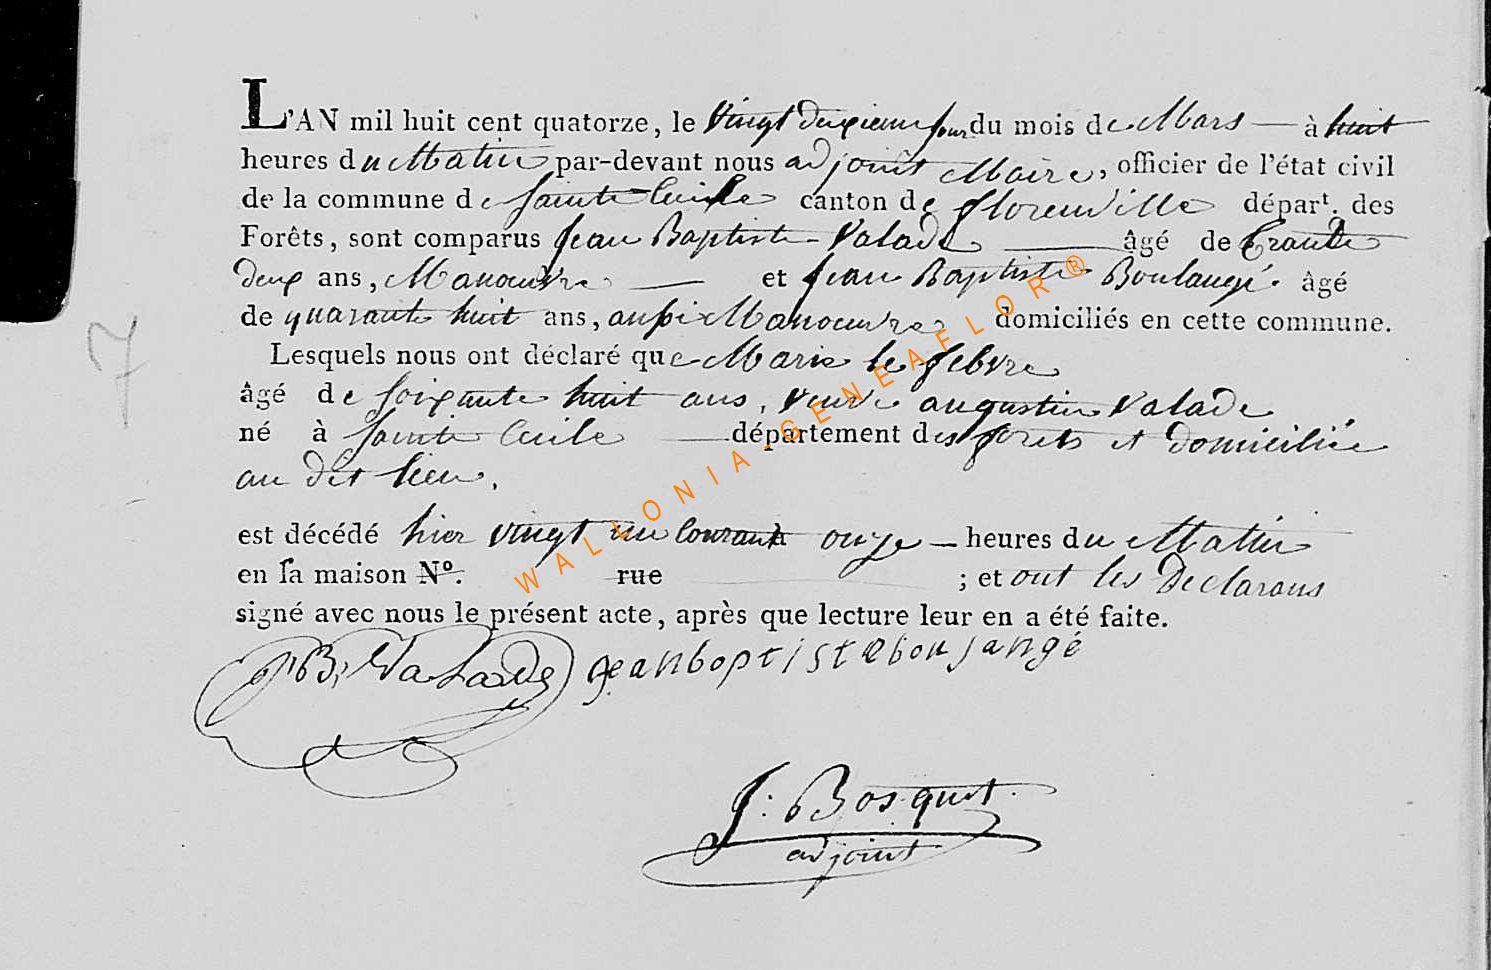 L'AN mil huit cent quatorze, le vingt deuxieme jour du mois de Mars — à huit
heures du Matin par-devant nous adjoint Maire, officier de l'état civil
de la commune de Sainte Cecile canton de florenville dépar^t. des
Forêts, sont comparus Jean Baptiste Valade — âgé de trante
deux ans, Manoeuvre — et Jean Baptiste Boulangé. âgé
de quarante huit ans, aussi Manoeuvre domiciliés en cette commune.
7
Lesquels nous ont déclaré que Marie le febvre
âgé de soixante huit ans, veuve augustin Valade
né à Sainte Cecile — département des forets et domiciliée
au dit lieu.
est décédé hier vingt un courant à onze — heures du Matin
en sa maison N°. rue ; et ont les declarans
signé avec nous le présent acte, après que lecture leur en a été faite.
JB; Valade jeanboptiste boulangé
J: Bosquet.
adjoint
WALLONIA.GENEAFLOR®